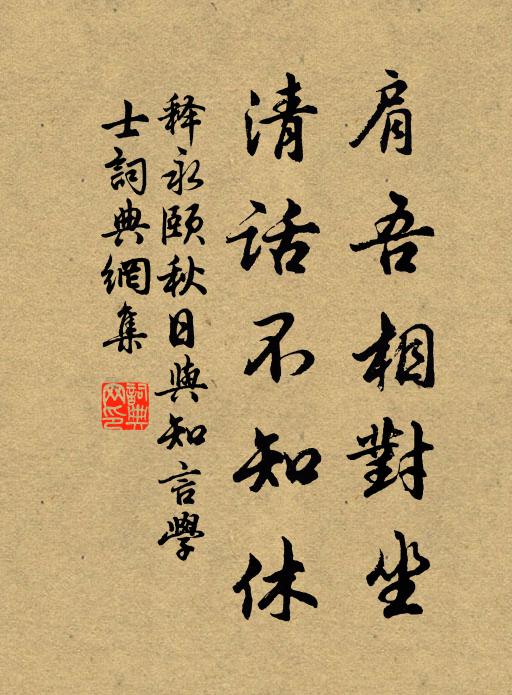 肩吾相對坐
清話不知休
释永颐秋日與知言學
士詞典網集
詞典
网印